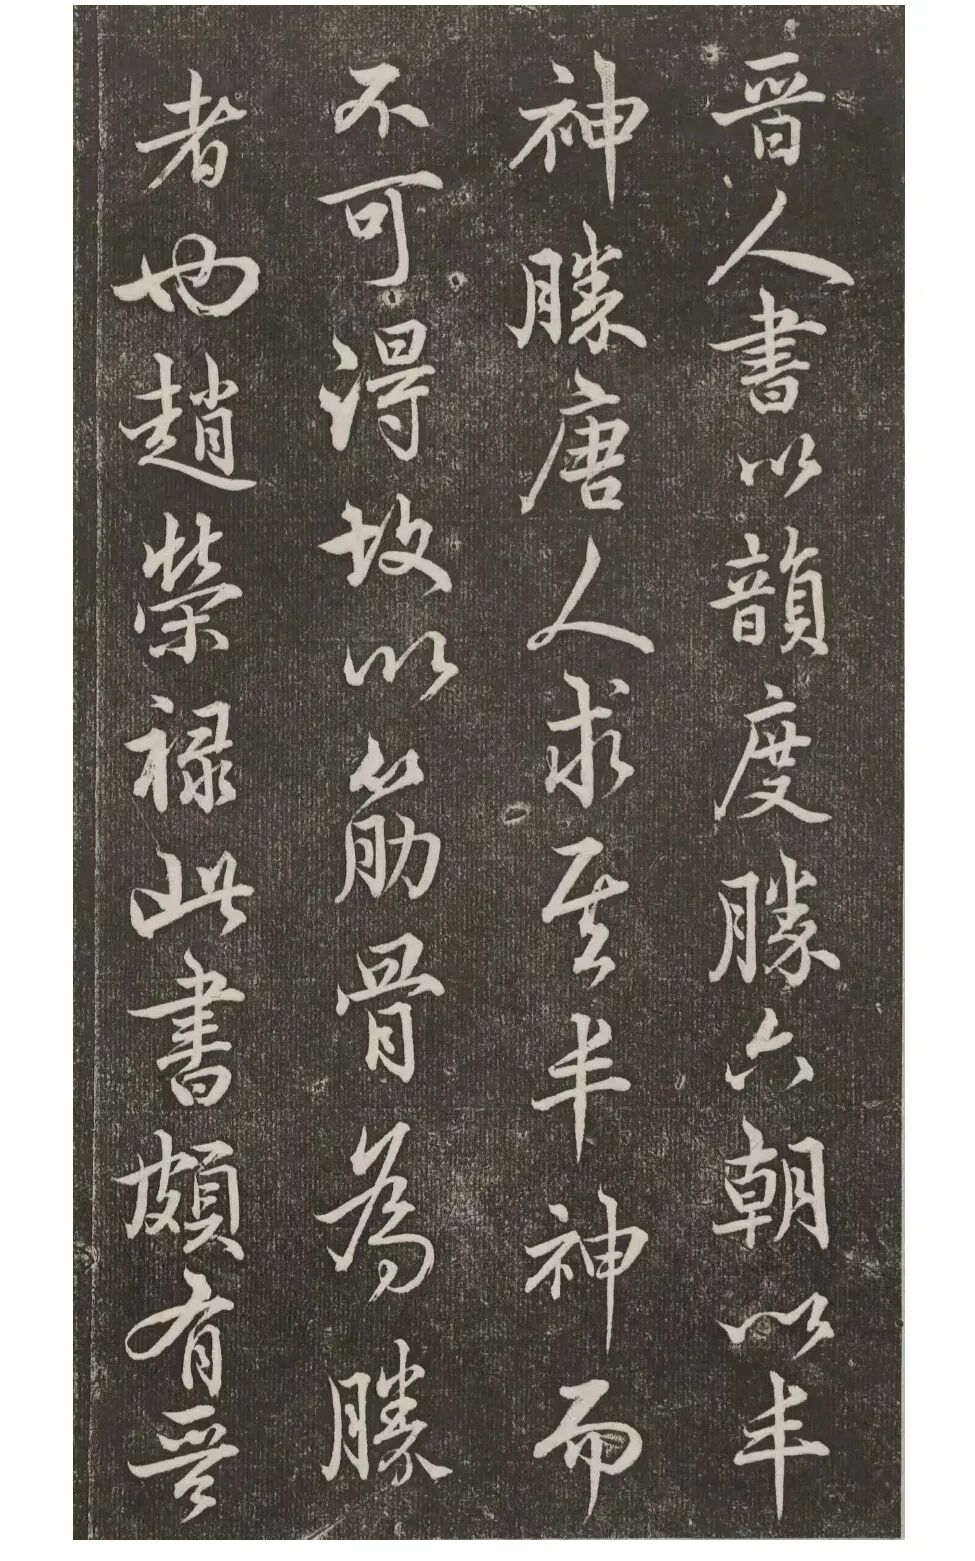 晉人書以韻度勝六朝以丰
神勝唐人求其丰神而
不可得故以筋骨為勝
者也趙榮祿此書頗有晉